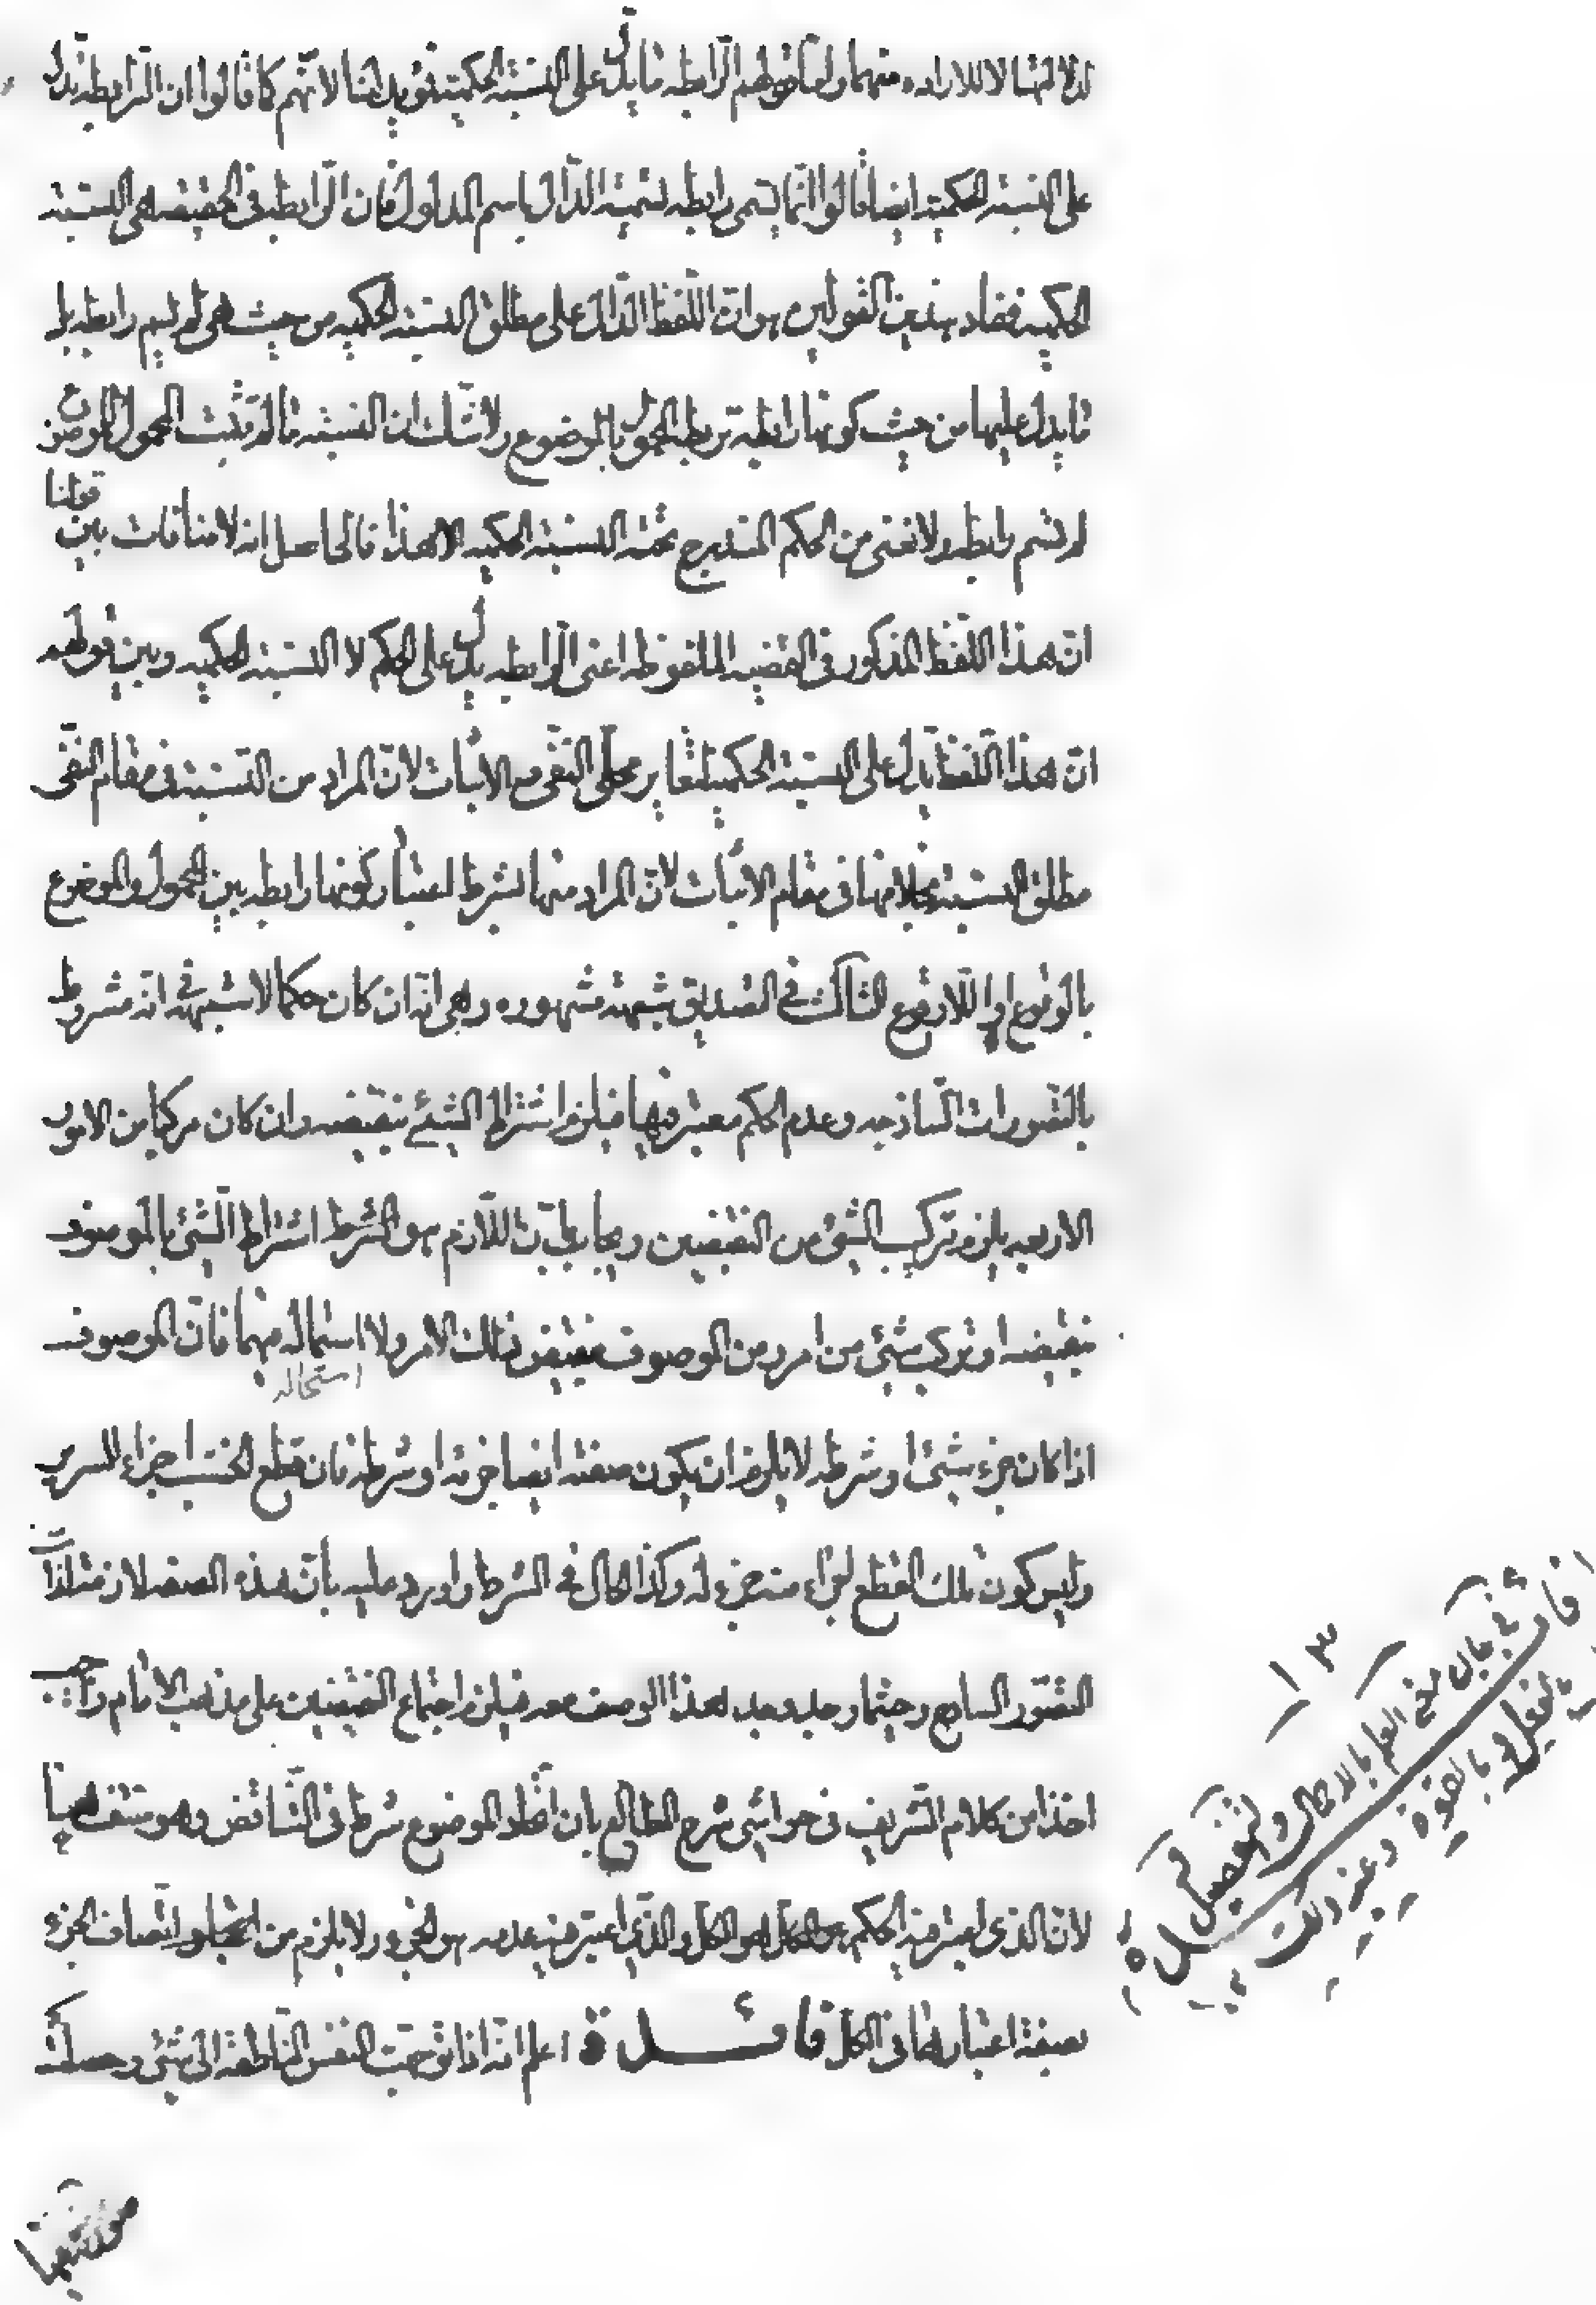 لدلالتها لا للاراده منهما واما قولهم الرابطه ما يدل على النسبة الحكمية فتويدلنا لانهم كما قالوا ان الرابطه تدل
على النسبة الحكمية ايضا قالوا انما يسمى رابطه تسمية الدال باسم المدلول فان الرابطه فى الحقيقه هى النسبته
الحكميه فمفاد هذين القولين هو ان اللفظ الدال على مطلق النسبته الحكميه من حيث هى لم تسم رابطه بل
ما يدل عليها من حيث كونها رابطه تربط المحمول بالموضوع ولا شك ان النسبته ما لم يثبت المحمول للموضوع
لم تسم رابطه ولا نعنى من الحكم المندرج تحته النسبته الحكميه الا هذا فالحاصل انه لا منافات بين قولنا
ان هذا اللفظ المذكور فى القضيه الملفوظه اعنى الرابطه يدل على الحكم لا النسبته الحكميه وبين قولهم
ان هذا اللفظ يدل على النسبته الحكمية لتغاير محلى النفى والاثبات لان المراد من النسبته فى مقام النفى
مطلق النسبته بخلافها فى مقام الاثبات لان المراد منها بشرط اعتبار كونها رابطه بين المحمول والموضوع
بالوقوع او اللاوقوع الثالث فى التصديق شبهة مشهوره وهى انه ان كان حكما لا شبهة فى انه مشروط
بالتصورات الساذجه وعدم الحكم معتبر فيها فيلزم اشتراط الشيئ بنقيضه وان كان مركبا من الامور
الاربعه يلزم تركيب الشيئ من النقيضين ويجاب بان اللازم هو الشرط اشتراط الشيئ بالموصوف
بنقيضه او تركب شيئ من امر ومن الموصوف بنقيض ذلك الامر ولا استمالة منهما فان الموصوف
استحاله
اذا كان جزء شيئ او شرطه لا يلزم ان يكون صفته ايضا جزئه او شرطه فان قطع الخشب اجزاء للسرير
وليس كون تلك القطع اجزاء منه جزء له وكذا الحال فى الشرط واورد عليه بان هذه الصفه لازمته لذات
التصور الساذج وحيثما وجد وجد هذا الوصف معه فيلزم اجتماع النقيضين على مذهب الامام واجيب
اخذا من كلام الشريف فى حواشى شرح المطالع بان اتحاد الموضوع شرط فى التناقض وهو منتف ههنا
لان الذى اعتبر فيه الحكم هو الكل والذى اعتبر فيه عدمه هو الجزء ولا يلزم من اتصاف الجزء
بصفة اعتبارها فى الكل فائدة اعلم انه اذا توجهت النفس الناطقة الى شيئ وحصلت
١٣
فائدة فى بيان معنى العلم بالاجمالى والتفصيلى
بالفعل او بالقوة وغير ذلك